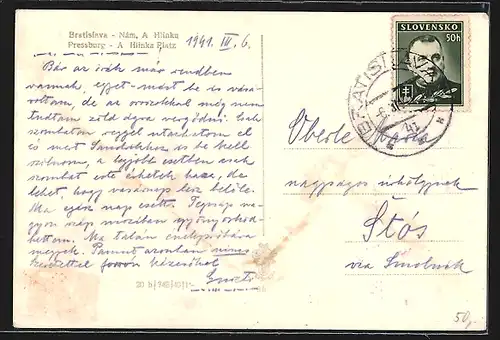 Bratislava - Nám. A Hlinku
Pressburg - A Hlinka Platz
1941. III. 6.
Bár az órák már rendben
vannak, egyet-mást be is vásá-
roltam, de az oroszokkal még nem
tudtam zöld ágra vergődni. Csak
szombaton reggel utazhatom el
és mert is be kell
a legjobb esetben csak
szombat este érhetek haza, de
lehet, hogy vasárnap lesz belőle.
Ma egész nap esett. Tegnap na-
gyon szép moziban gyönyörköd-
hettem. Ma talán
megyek. azonban nincs
Szeretettel kézcsókol
Gusti
20 b/
SLOVENSKO
50h
BRATISLAVA
Oberle
nagyságos úrhölgynek
Štós
via Smolník
50,-